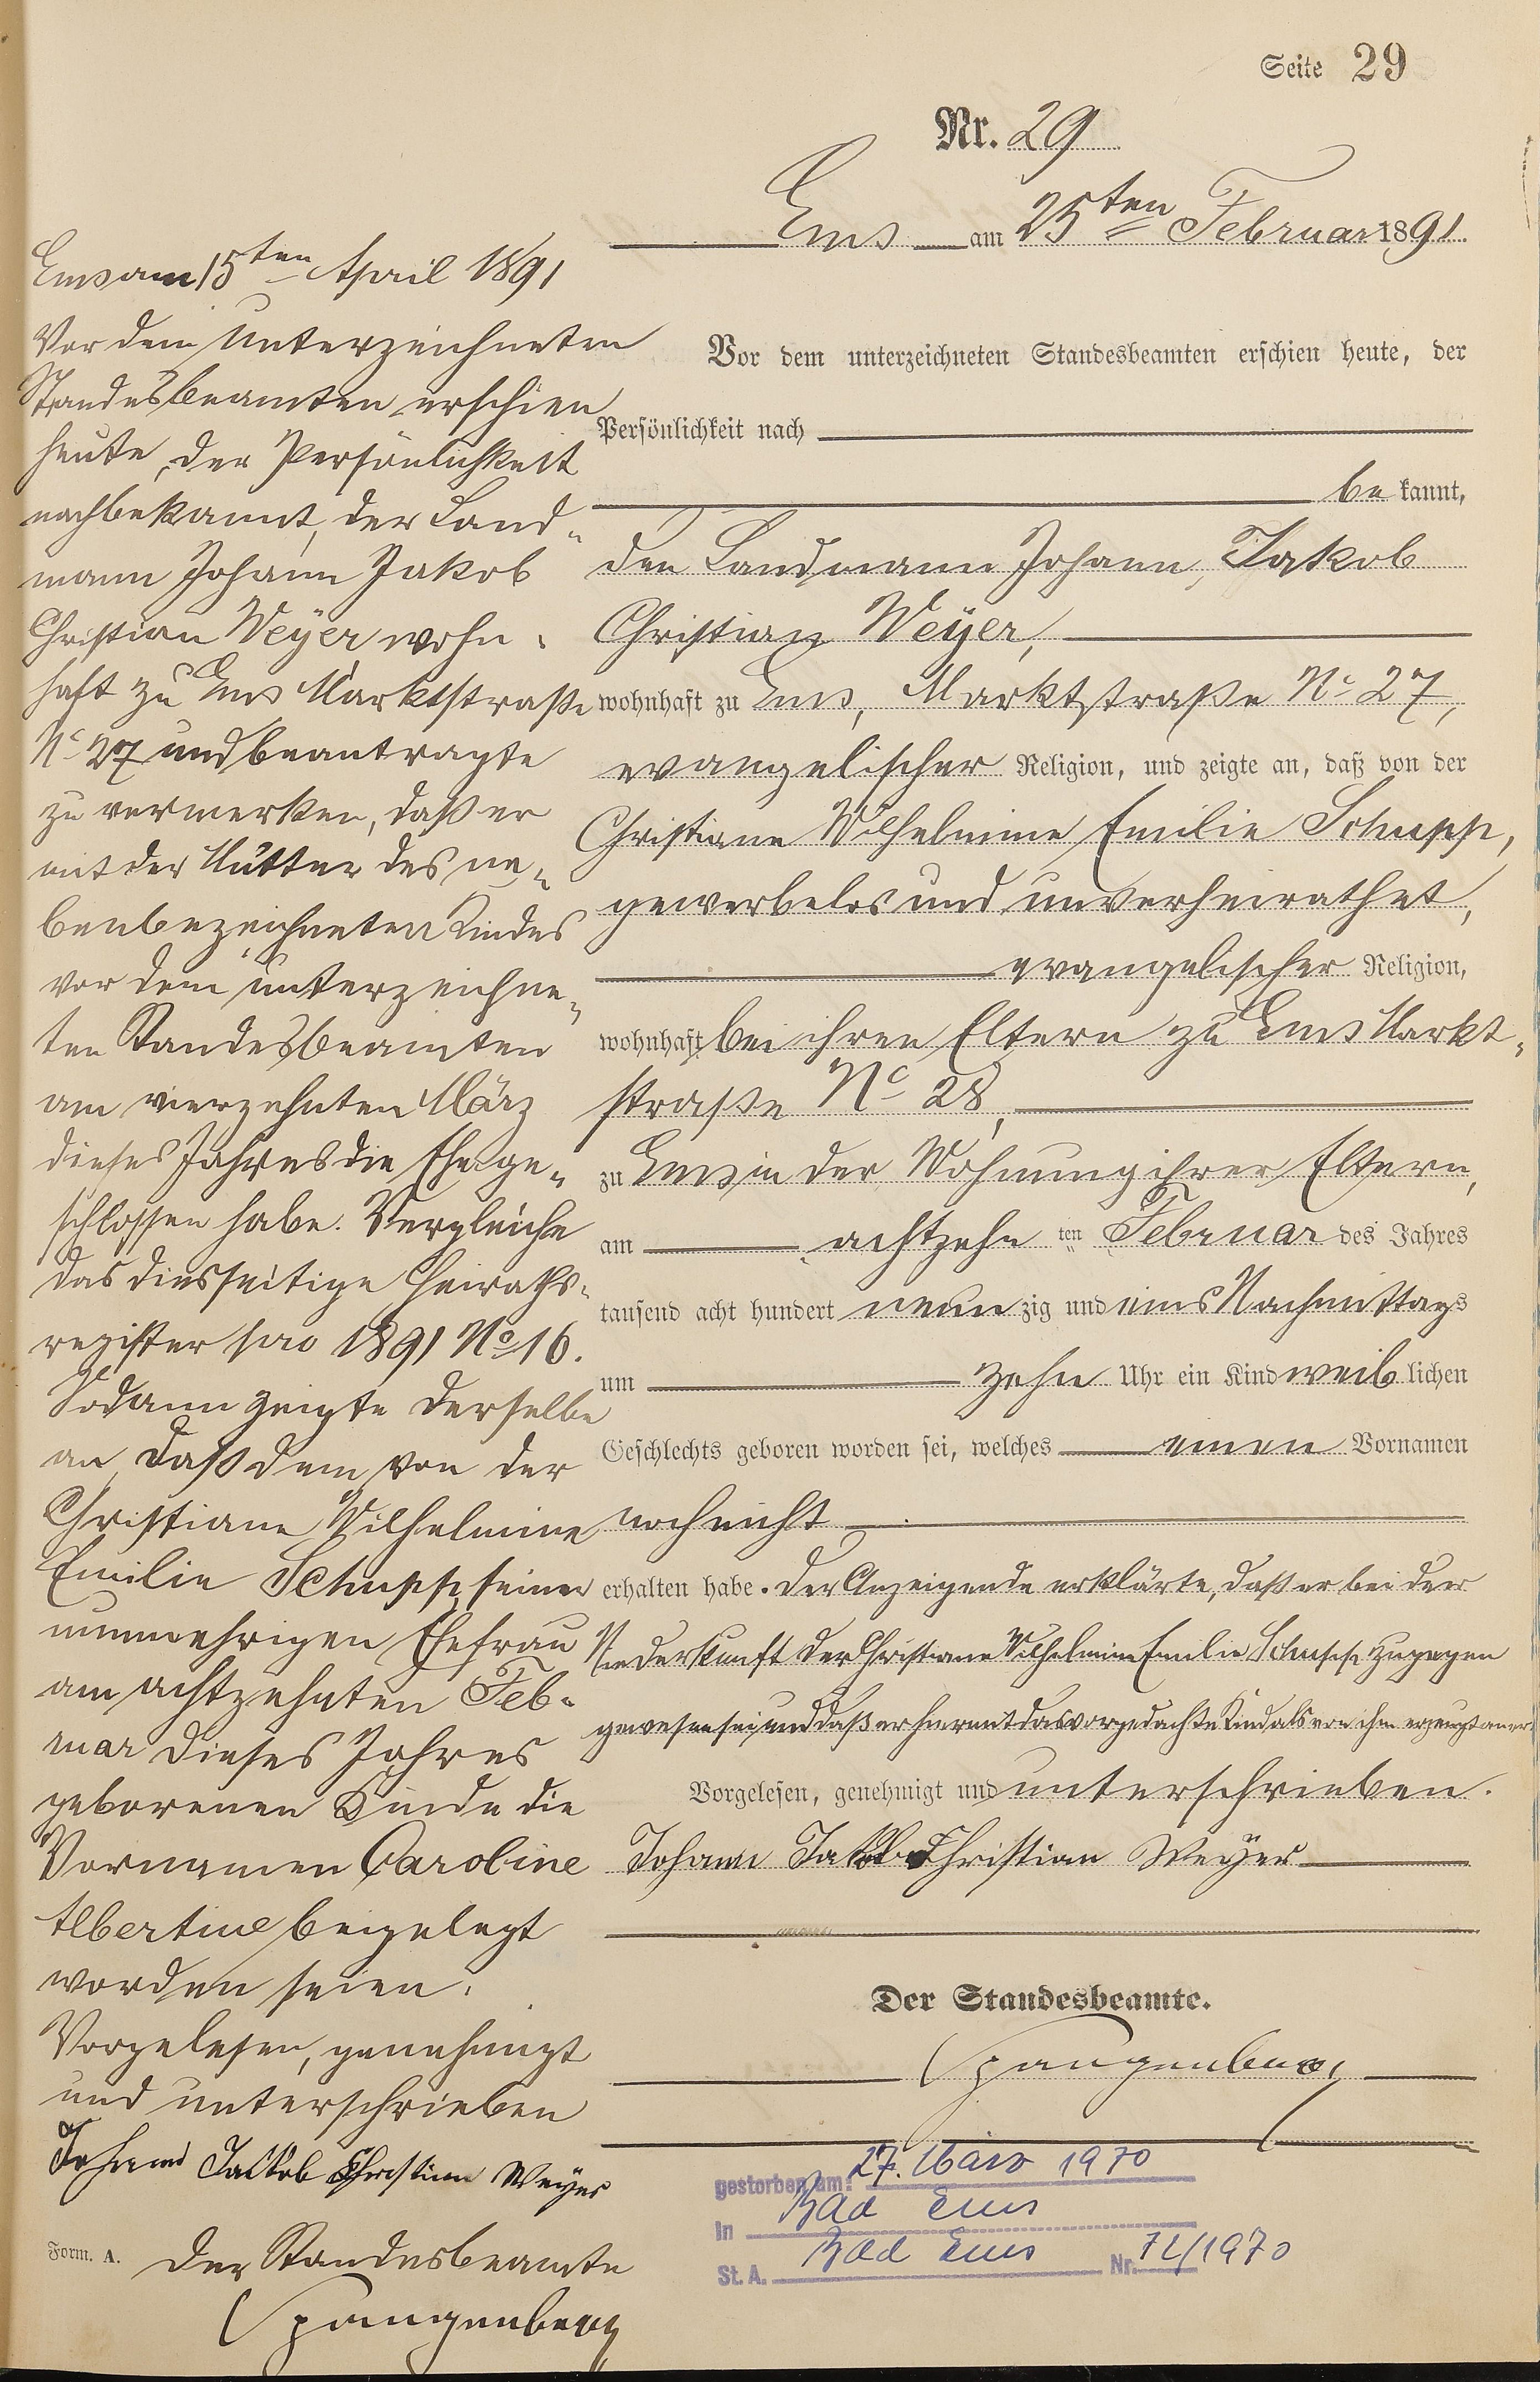 Seite 29
Nr. 29
Ems am 25ten Februar 1891.
Vor dem unterzeichneten Standesbeamten erschien heute, der
Persönlichkeit nach
bekannt,
der Landmann Johann Jakob
Christian Weÿer,
wohnhaft zu Ems, Marktstraße No 27,
evangelischer Religion, und zeigte an, daß von der
Christiane Wilhelmine Emilie Schupp,
gewerbelos und unverheirathet,
evangelischer Religion,
wohnhaft bei ihren Eltern zu Ems Markt-
straße No 28,
zu Ems in der Wohnung ihrer Eltern,
am achtzehnten Februar des Jahres
tausend acht hundert neunzig und eins Nachmittags
um zehn Uhr ein Kind weiblichen
Geschlechts geboren worden sei, welches einen Vornamen
noch nicht
erhalten habe. Der Anzeigende erklärte, daß er bei der
Niederkunft der Christiane Wilhelmine Emilie Schupp zugegen
gewesen sei und daß er hiermit das vorgedachte Kind als von ihm erzeugt aner
Vorgelesen, genehmigt und unterschrieben.
Johann Jakob Christian Weÿer
Der Standesbeamte.
Spangenberg
gestorben am: 27. März 1970
in Bad Ems
St. A. Bad Ems Nr. /1970
Ems am 15ten April 1891
Vor dem unterzeichneten
Standesbeamten erschien
heute, der Persönlichkeit
nach bekannt, der Land-
mann Johann Jakob
Christian Weÿer wohn-
haft zu Ems Marktstraße
No 27 und beantragte
zu vermerken, daß er
mit der Mutter des ne-
benbezeichneten Kindes
vor dem unterzeichne-
ten Standesbeamten
am vierzehnten März
dieses Jahres die Ehe ge-
schlossen habe. Vergleiche
das diesseitige Heiraths-
register pro 1891 No 16.
Sodann zeigte derselbe
an, daß dem von der
Christiane Wilhelmine
Emilie Schupp, seiner
nunmehrigen Ehefrau
am achtzehnten Feb-
ruar dieses Jahres
geborenen Kinde die
Vornamen Caroline
Albertine beigelegt
worden seien.
Vorgelesen, genehmigt
und unterschrieben
Johann Jakob Christian Weyer
Form. A. Der Standesbeamte
Spangenberg